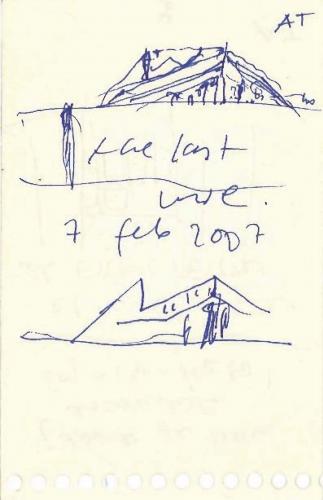 AT
the last
7 feb 2007